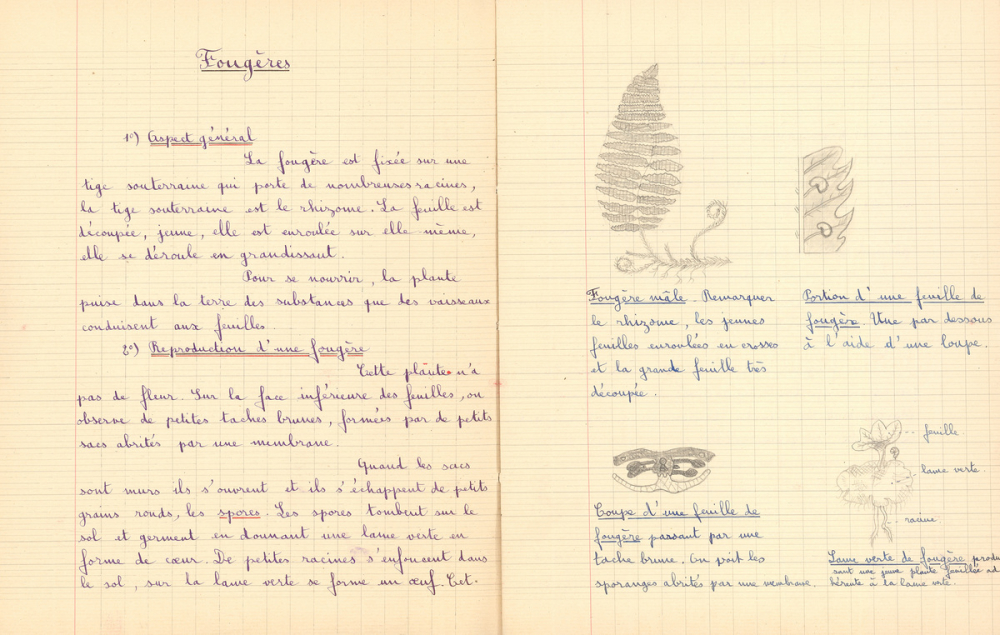 Fougères
1º) Aspect général
La fougère est fixée sur une
tige souterraine qui porte de nombreuses racines,
la tige souterraine est le rhizome. La feuille est
découpée, jeune, elle est enroulée sur elle même,
elle se déroule en grandissant.
Pour se nourrir, la plante
puise dans la terre des substances que des vaisseaux
conduisent aux feuilles.
2º) Reproduction d'une fougère
Cette plante n'a
pas de fleur. Sur la face inférieure des feuilles, on
observe de petites taches brunes, formées par de petits
sacs abrités par une membrane.
Quand les sacs
sont murs ils s'ouvrent et ils s'échappent de petits
grains ronds, les spores. Les spores tombent sur le
sol et germent en donnant une lame verte en
forme de cœur. De petites racines s'enfoncent dans
le sol, sur la lame verte se forme un œuf. Cet.
Fougère mâle. Remarquer
le rhizome, les jeunes
feuilles enroulées en crosses
et la grande feuille très
découpée.
Portion d'une feuille de
fougère. Vue par dessous
à l'aide d'une loupe.
Coupe d'une feuille de
fougère passant par une
tache brune. On voit les
sporanges abrités par une membrane.
feuille
lame verte.
racine.
Lame verte de fougère produi
sant une jeune plante feuillée ad
hérente à la lame verte.